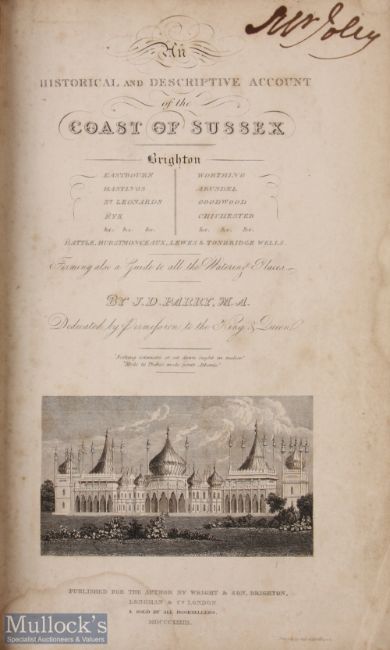 Mr Foley
An
HISTORICAL AND DESCRIPTIVE ACCOUNT
of the
COAST OF SUSSEX
Brighton
EASTBOURN WORTHING
HASTINGS ARUNDEL
ST LEONARDS GOODWOOD
RYE CHICHESTER
&c. &c. &c. &c. &c. &c.
BATTLE, HURSTMONCEAUX, LEWES & TONBRIDGE WELLS.
Forming also a Guide to all the Watering Places.
BY J. D. PARRY, M.A.
Dedicated by Permission to the King & Queen
"Nothing extenuate or set down aught in malice"
PUBLISHED FOR THE AUTHOR BY WRIGHT & SON, BRIGHTON,
LONGMAN & Co LONDON
& SOLD BY ALL BOOKSELLERS.
MDCCCXXXIII.
Mullock's
Specialist Auctioneers & Valuers